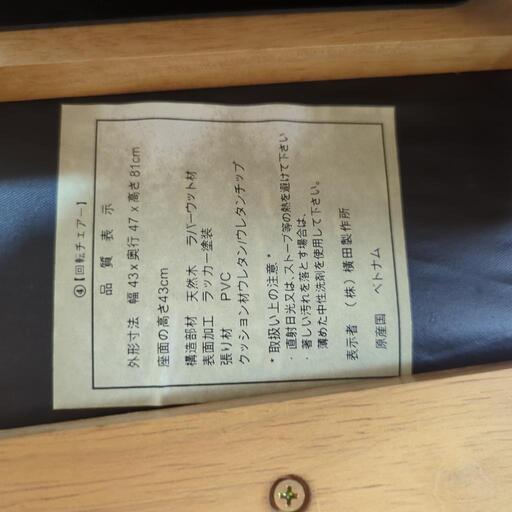 ④【回転チェアー】
品質表示
外形寸法 幅43x奥行47x高さ81cm
座面の高さ43cm
構造部材 天然木 ラバーウット材
表面加工 ラッカー塗装
張り材 PVC
クッション材ウレタン/ウレタンチップ
*取扱い上の注意*
・直射日光又は、ストーブ等の熱を避けて下さい
・著しい汚れを落とす場合は、
薄めた中性洗剤を使用して下さい。
表示者 (株)横田製作所
原産国 ベトナム